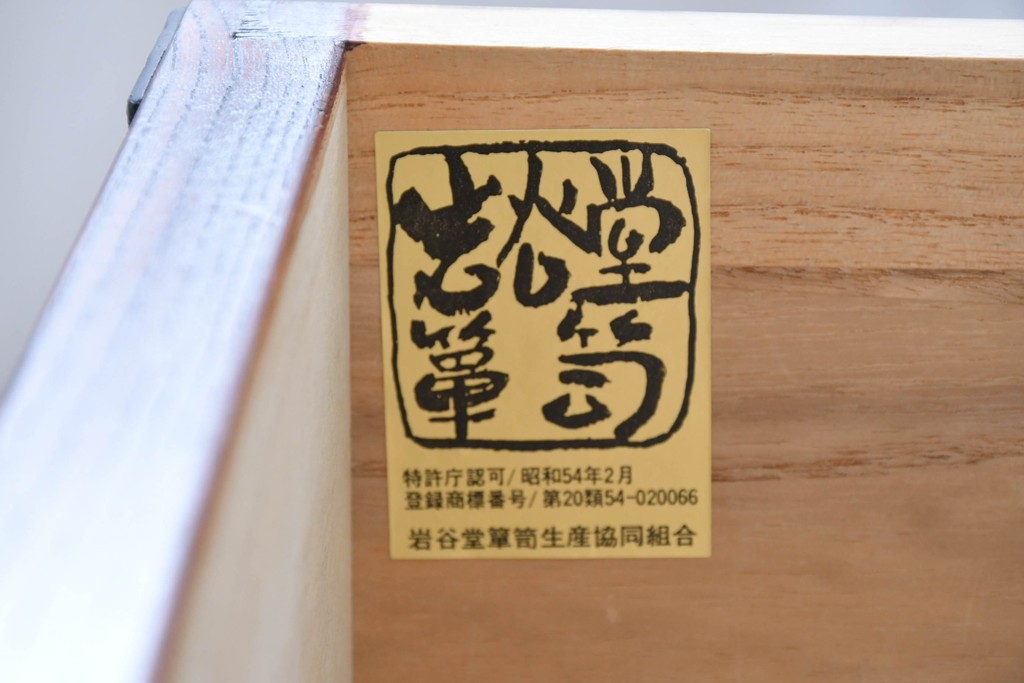 岩谷堂
箪笥
特許庁認可/昭和54年2月
登録商標番号/第20類54-020066
岩谷堂箪笥生産協同組合